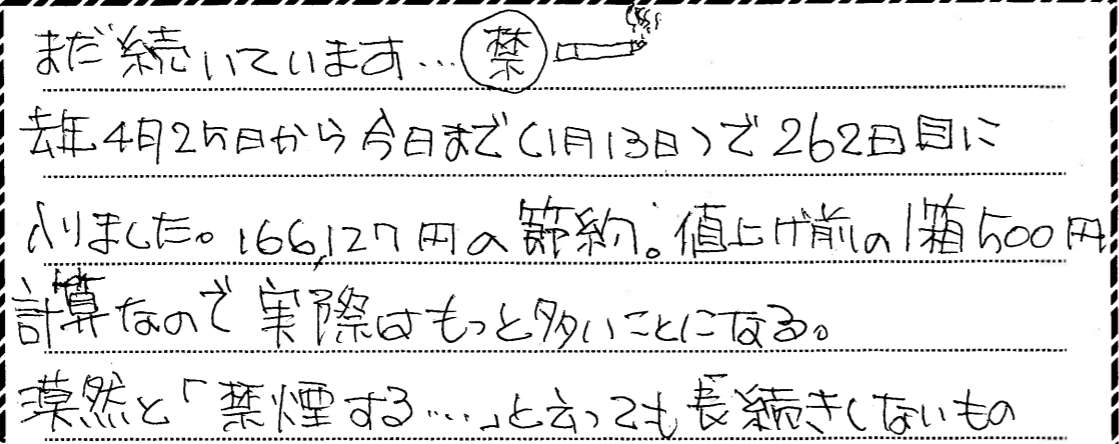 まだ続いています…禁
去年4月25日から今日まで(1月13日)で262日目に
入りました。166,127円の節約。値上げ前の1箱500円
計算なので実際はもっと多いことになる。
漠然と「禁煙する……」と云っても長続きしないもの